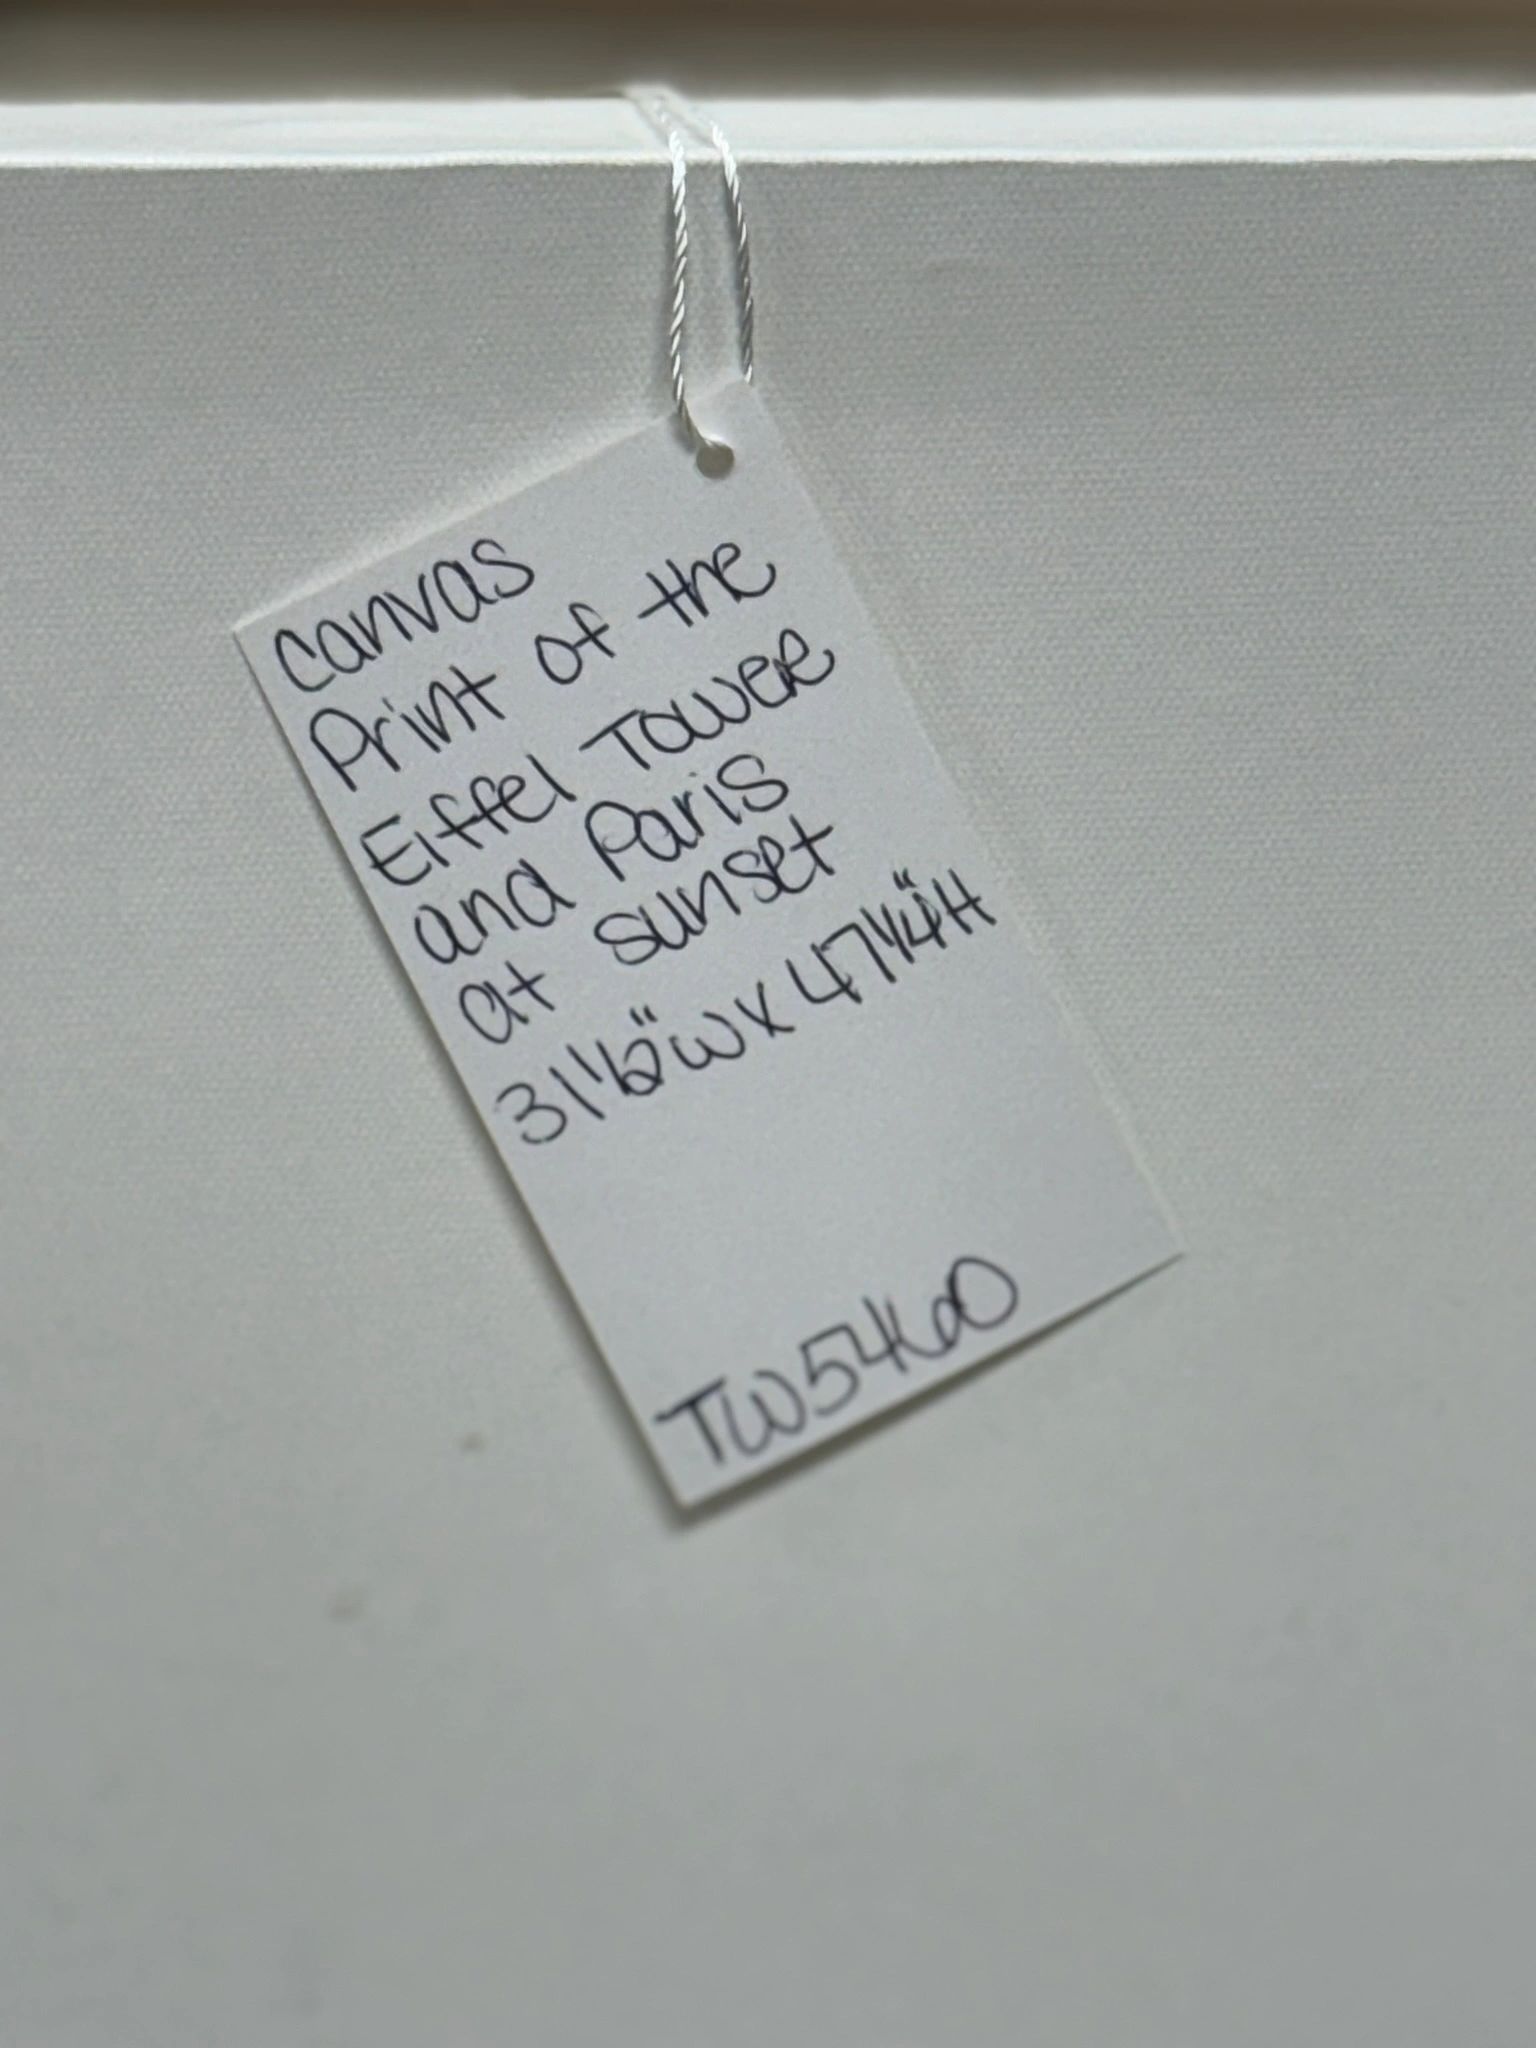 Canvas
Print of the
Eiffel Tower
and Paris
at sunset
31 1/2"W x 47 1/4"H
TW5460